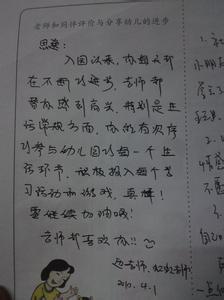 老师和同伴评价与分享幼儿的进步
思菱：
入园以来，你每天都
在不断的进步，老师都
替你感到高兴，特别是生
活常规方面，你能有次序
的参与幼儿园的每一个生
活环节，积极投入每个学
习活动和游戏，真棒！
要继续加油哦！
老师都喜欢你！！
老师
2010.4.1